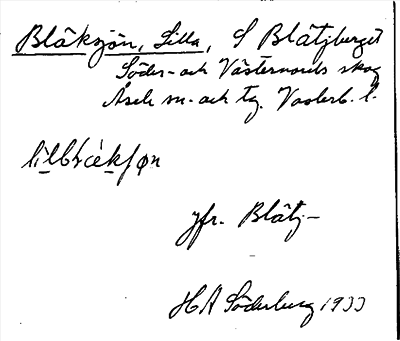 Blåksjön, Lilla, S Blåtjberget
Söder- och Västernorrds skog
Åsele sn. och tg. Vasterb. l.
jfr. Blåtj-
H A Söderberg 1933